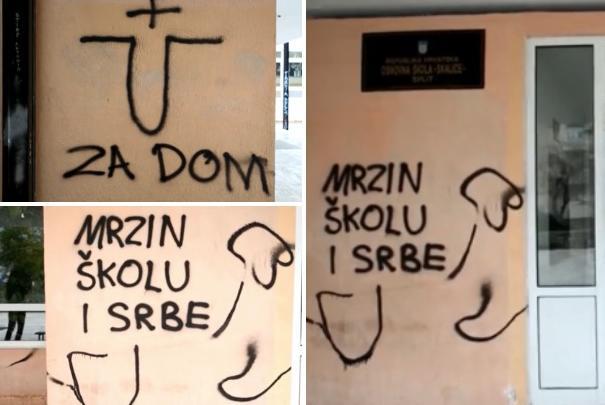 ZA DOM
MRZIN
ŠKOLU
I SRBE
MRZIN
ŠKOLU
I SRBE
REPUBLIKA HRVATSKA
OSNOVNA ŠKOLA "SKALICE"
SPLIT